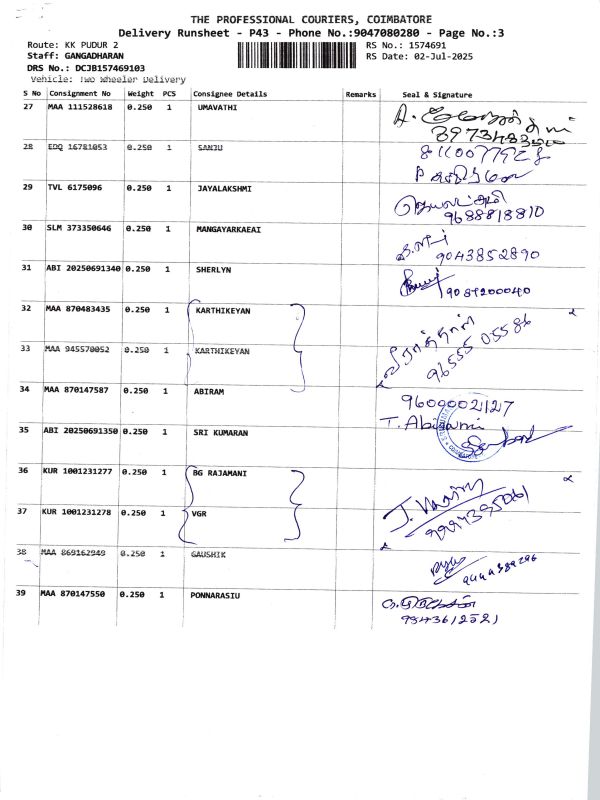 THE PROFESSIONAL COURIERS, COIMBATORE
Delivery Runsheet - P43 - Phone No.:9047080280 - Page No.:3
Route: KK PUDUR 2 RS No.: 1574691
Staff: GANGADHARAN RS Date: 02-Jul-2025
DRS No.: DCJB157469103
Vehicle: Two Wheeler Delivery
S No Consignment No Weight PCS Consignee Details Remarks Seal & Signature
27 MAA 111528618 0.250 1 UMAVATHI
28 EDQ 16781053 0.250 1 SANJU
29 TVL 6175096 0.250 1 JAYALAKSHMI
9688818810
30 SLM 373350646 0.250 1 MANGAYARKAEAI
9043852890
31 ABI 20250691340 0.250 1 SHERLYN
9089200040
32 MAA 870483435 0.250 1 KARTHIKEYAN
33 MAA 945570052 0.250 1 KARTHIKEYAN
96555 05586
34 MAA 870147587 0.250 1 ABIRAM
96000021127
T. Abirami
35 ABI 20250691350 0.250 1 SRI KUMARAN
36 KUR 1001231277 0.250 1 BG RAJAMANI
37 KUR 1001231278 0.250 1 VGR
38 MAA 869162949 0.250 1 GAUSHIK
39 MAA 870147550 0.250 1 PONNARASIU
9843612521